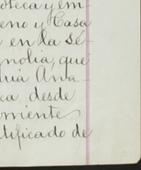 oteca y em-
eno y Casa
en la sé-
nolia, que
uia Ana
ca desde
orriente
tificado de